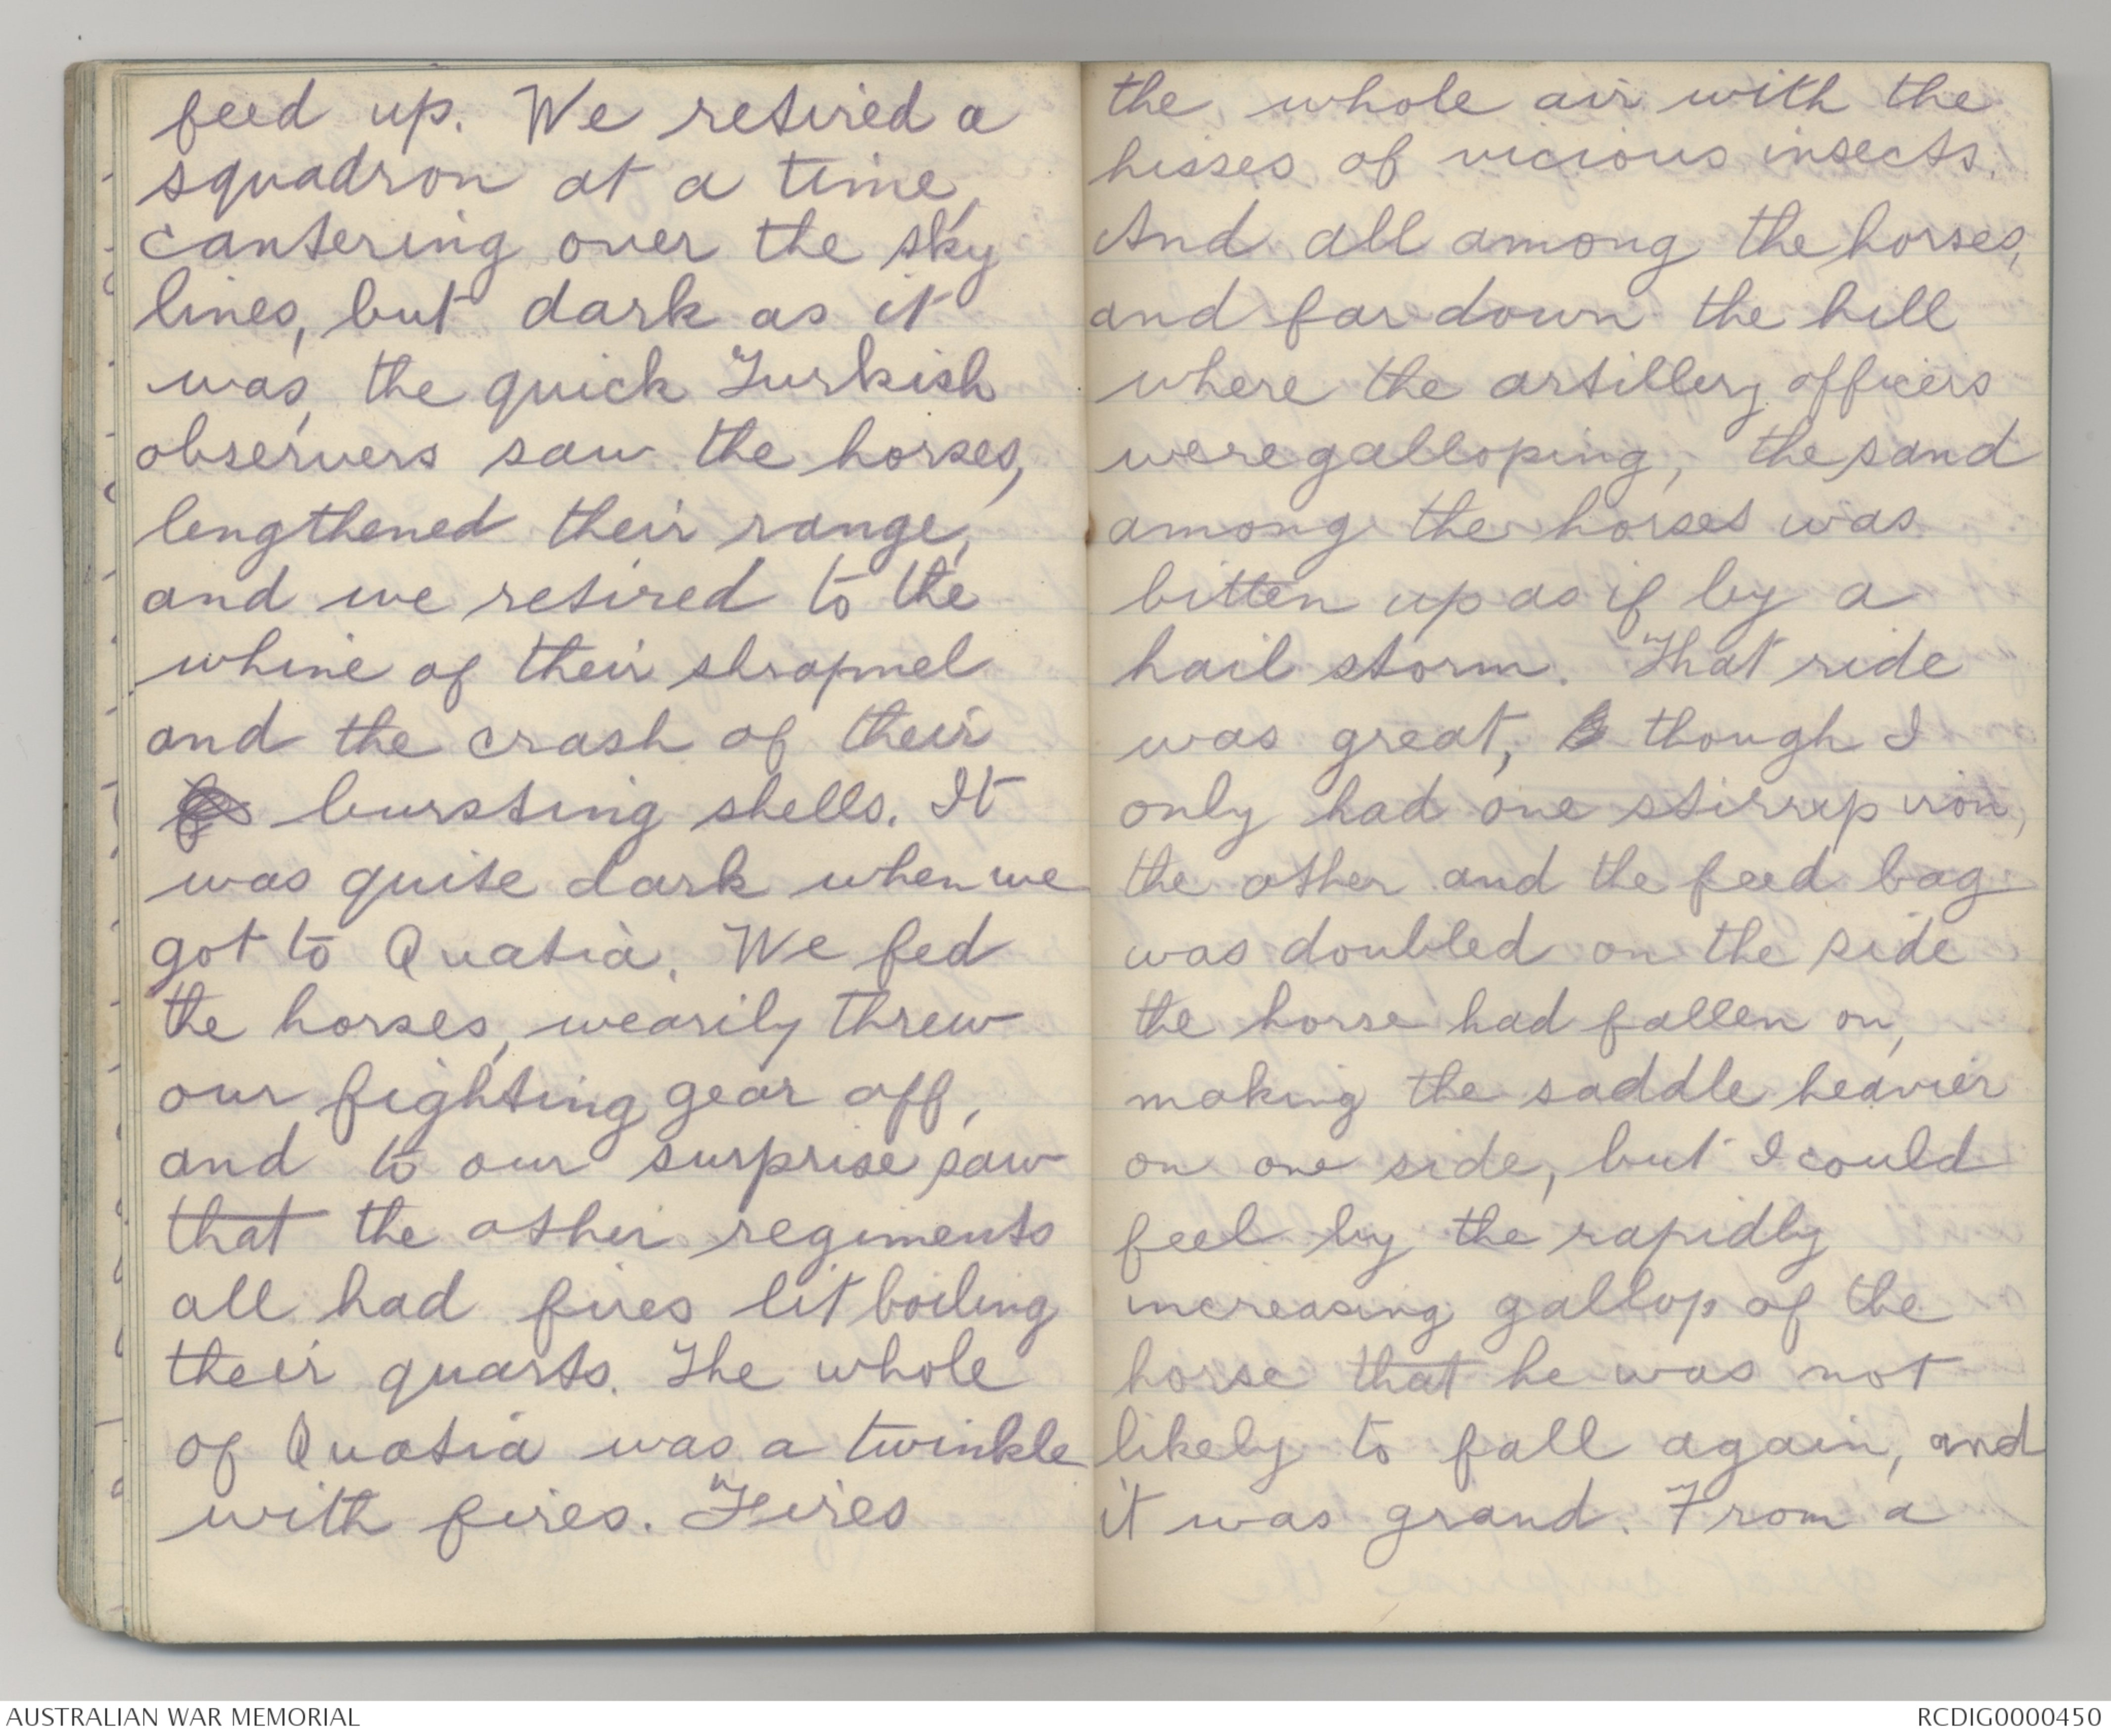 feed up. We retired a
squadron at a time,
cantering over the sky
lines, but dark as it
was, the quick Turkish
observers saw the horses,
lengthened their range,
and we retired to the
whine of their shrapnel
and the crash of their
bursting shells. It
was quite dark when we
got to Quatia. We fed
the horses, wearily threw
our fighting gear off,
and to our surprise saw
that the other regiments
all had fires lit boiling
their quarts. The whole
of Quatia was a twinkle
with fires. Fires
the whole air with the
hisses of vicious insects.
And all among the horses,
and far down the hill
where the artillery officers
were galloping, the sand
among the horses was
bitten up as if by a
hail storm. That ride
was great, though I
only had one stirrup iron,
the other and the feed bag
was doubled on the side
the horse had fallen on,
making the saddle heavier
on one side, but I could
feel by the rapidly
increasing gallop of the
horse that he was not
likely to fall again, and
it was grand. From a
AUSTRALIAN WAR MEMORIAL
RCDIG0000450